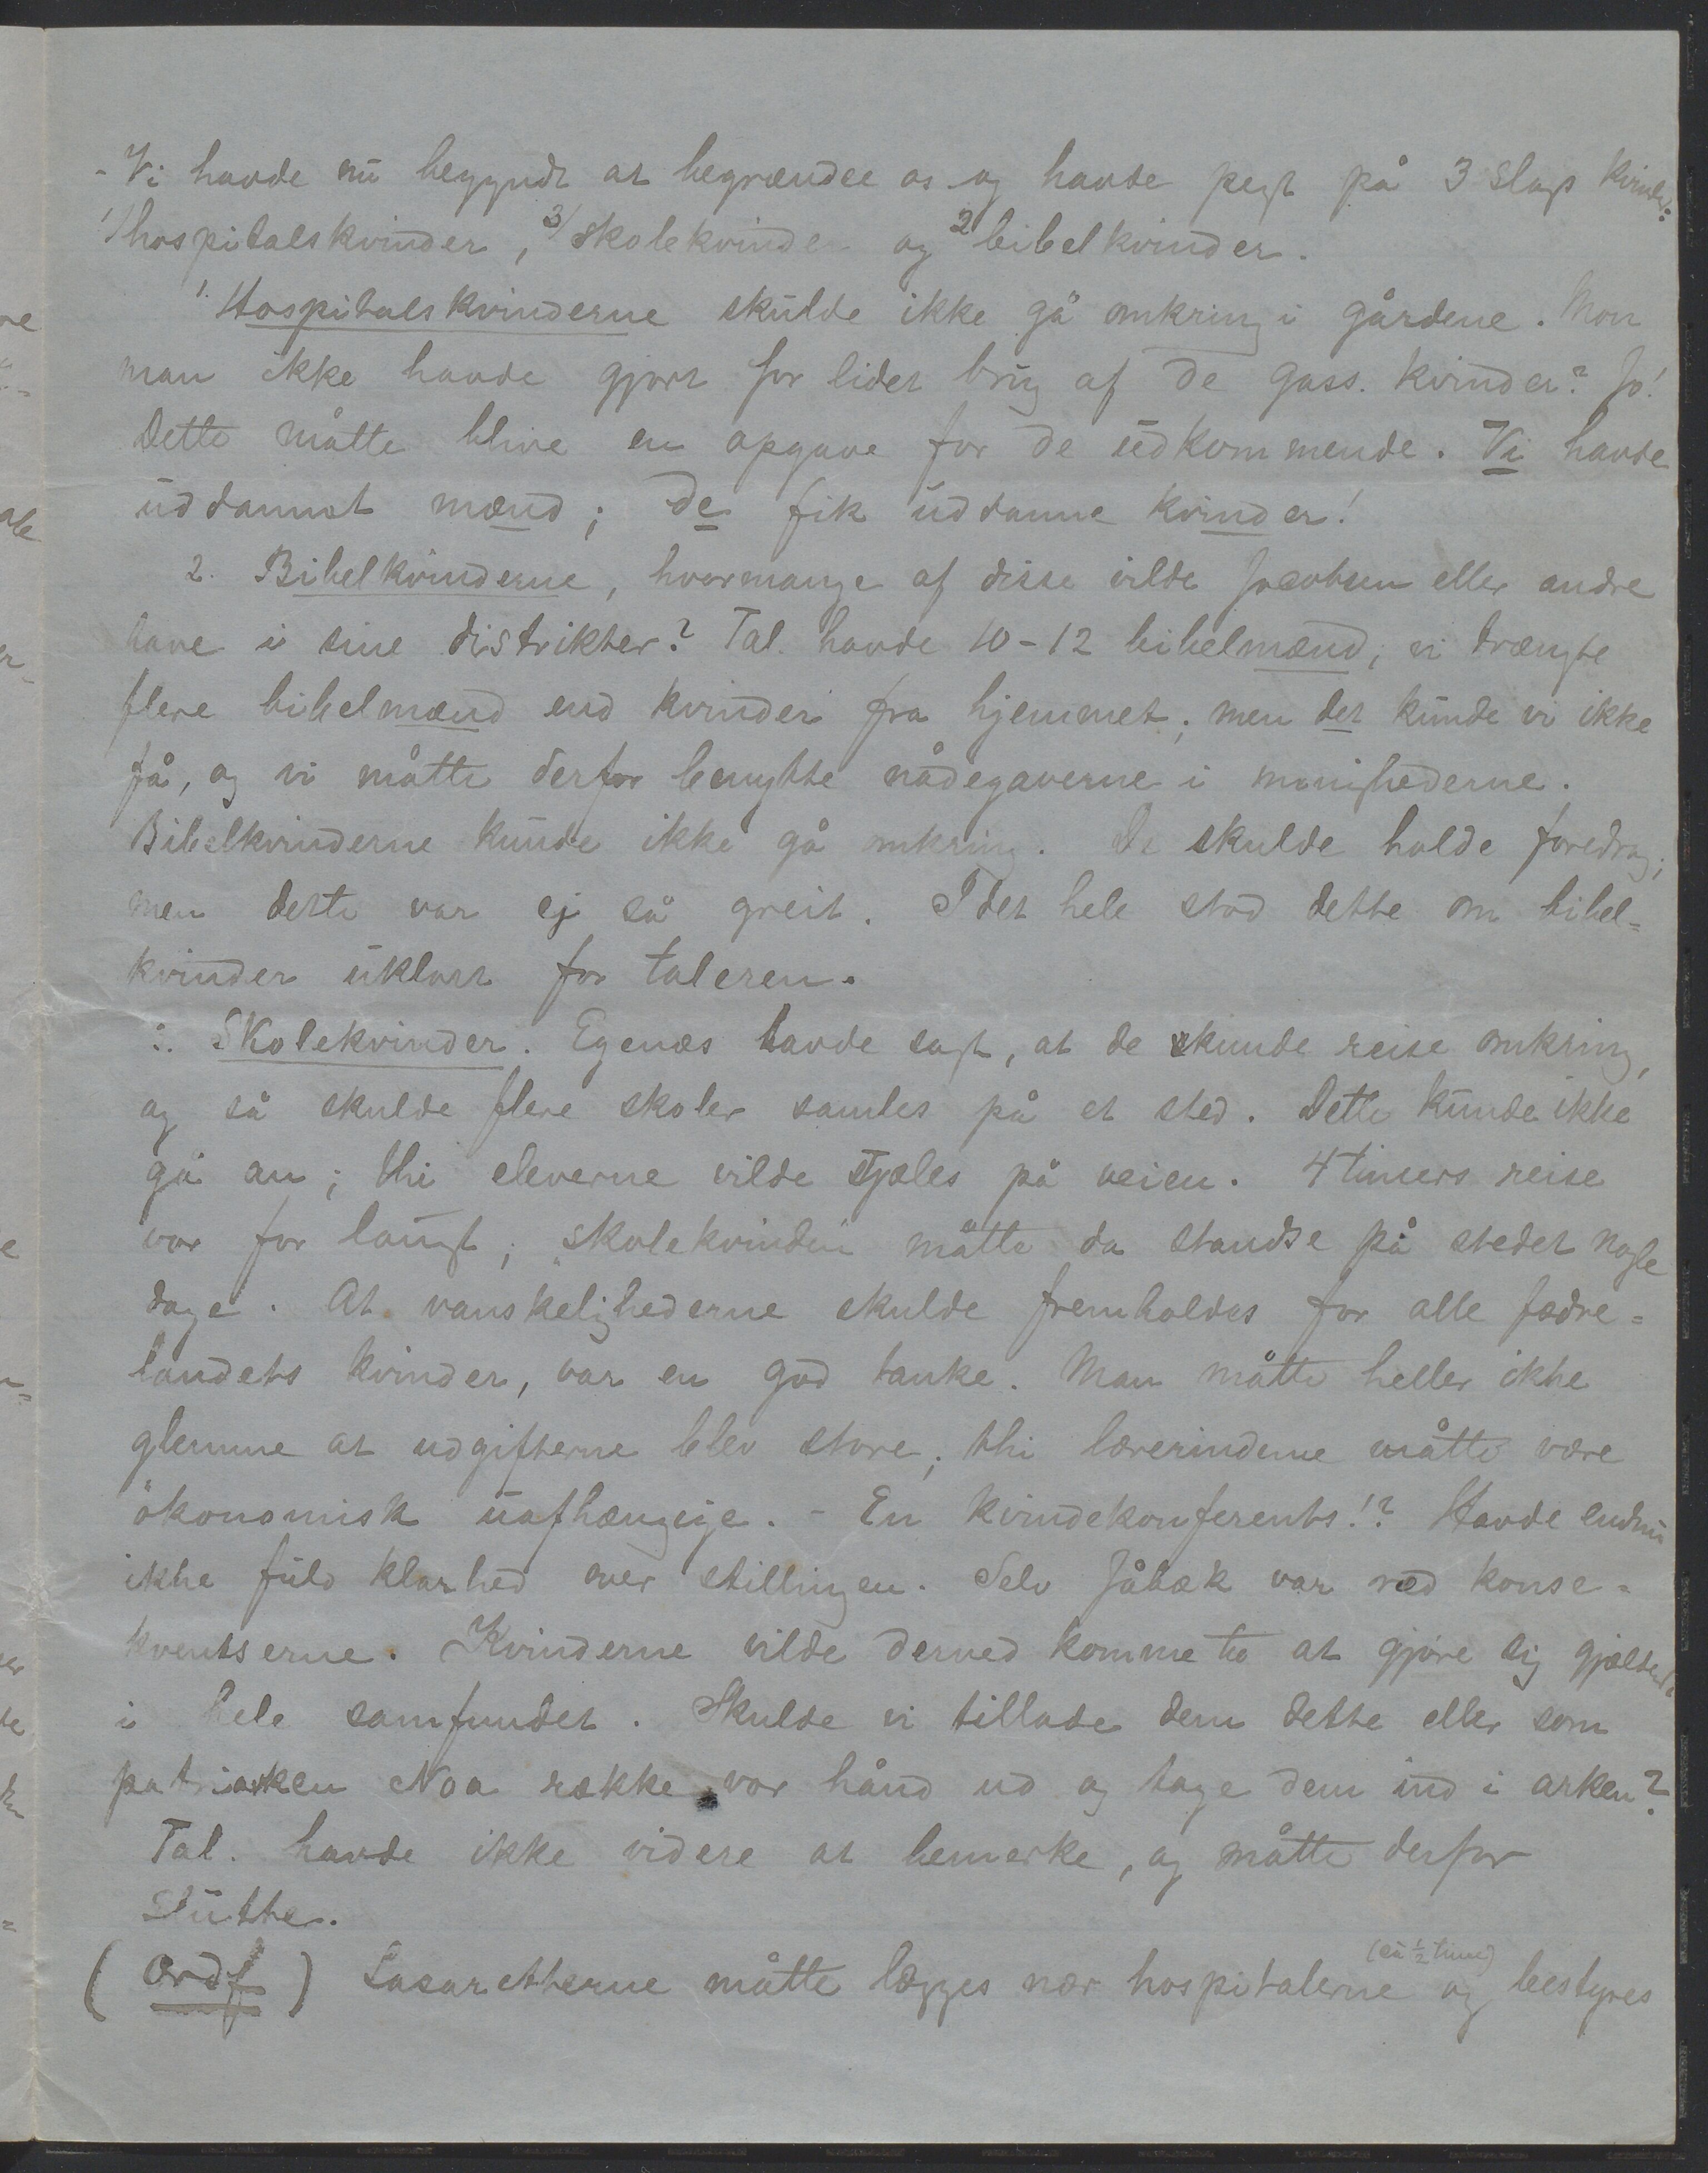 - Vi havde nu begyndt at begrændse os og havde pegt på 3 slags kvinder:
1/ hospitalskvinder, 3/ skolekvinder og 2 bibelkvinder.
1. Hospitalskvinderne skulde ikke gå omkring i gårdene. Mon
man ikke havde gjort for lidet brug af de gass. kvinder? Jo!
Dette måtte blive en opgave for de udkommende. Vi havde
uddannet mænd; De fik uddanne kvinder!
2. Bibelkvinderne, hvormange af disse vilde Jacobsen eller andre
have i sine distrikter? Tal. havde 10-12 bibelmænd; vi trængte
flere bibelmænd end kvinder fra hjemmet; men det kunde vi ikke
få, og vi måtte derfor benytte nådegaverne i menighederne.
Bibelkvinderne kunde ikke gå omkring. De skulde holde foredrag;
men dette var ej så greit. I det hele stod dette om bibel-
kvinder uklart for taleren.
3. Skolekvinder. Egenæs havde sagt, at de kunde reise omkring,
og så skulde flere skoler samles på et sted. Dette kunde ikke
gå an; thi eleverne vilde stjæles på veien. 4 timers reise
var for langt; "skolekvinden" måtte da standse på stedet nogle
dage. At vanskelighederne skulde fremholdes for alle fædre-
landets kvinder, var en god tanke. Man måtte heller ikke
glemme at udgifterne blev store; thi lærerinderne måtte være
økonomisk uafhængige. - En kvindekonferents!? Havde endnu
ikke fuld klarhed over stillingen. Selv Jåbæk var ræd konse-
kventserne. Kvinderne vilde derved komme til at gjøre sig gjældende
i hele samfundet. Skulde vi tillade dem dette eller som
patriarken Noa række vor hånd ud og tage dem ind i arken?
Tal. havde ikke videre at bemerke, og måtte derfor
slutte.
(Ordf) Lasaretterne måtte lægges nær hospitalerne (en ½ time) og bestyres